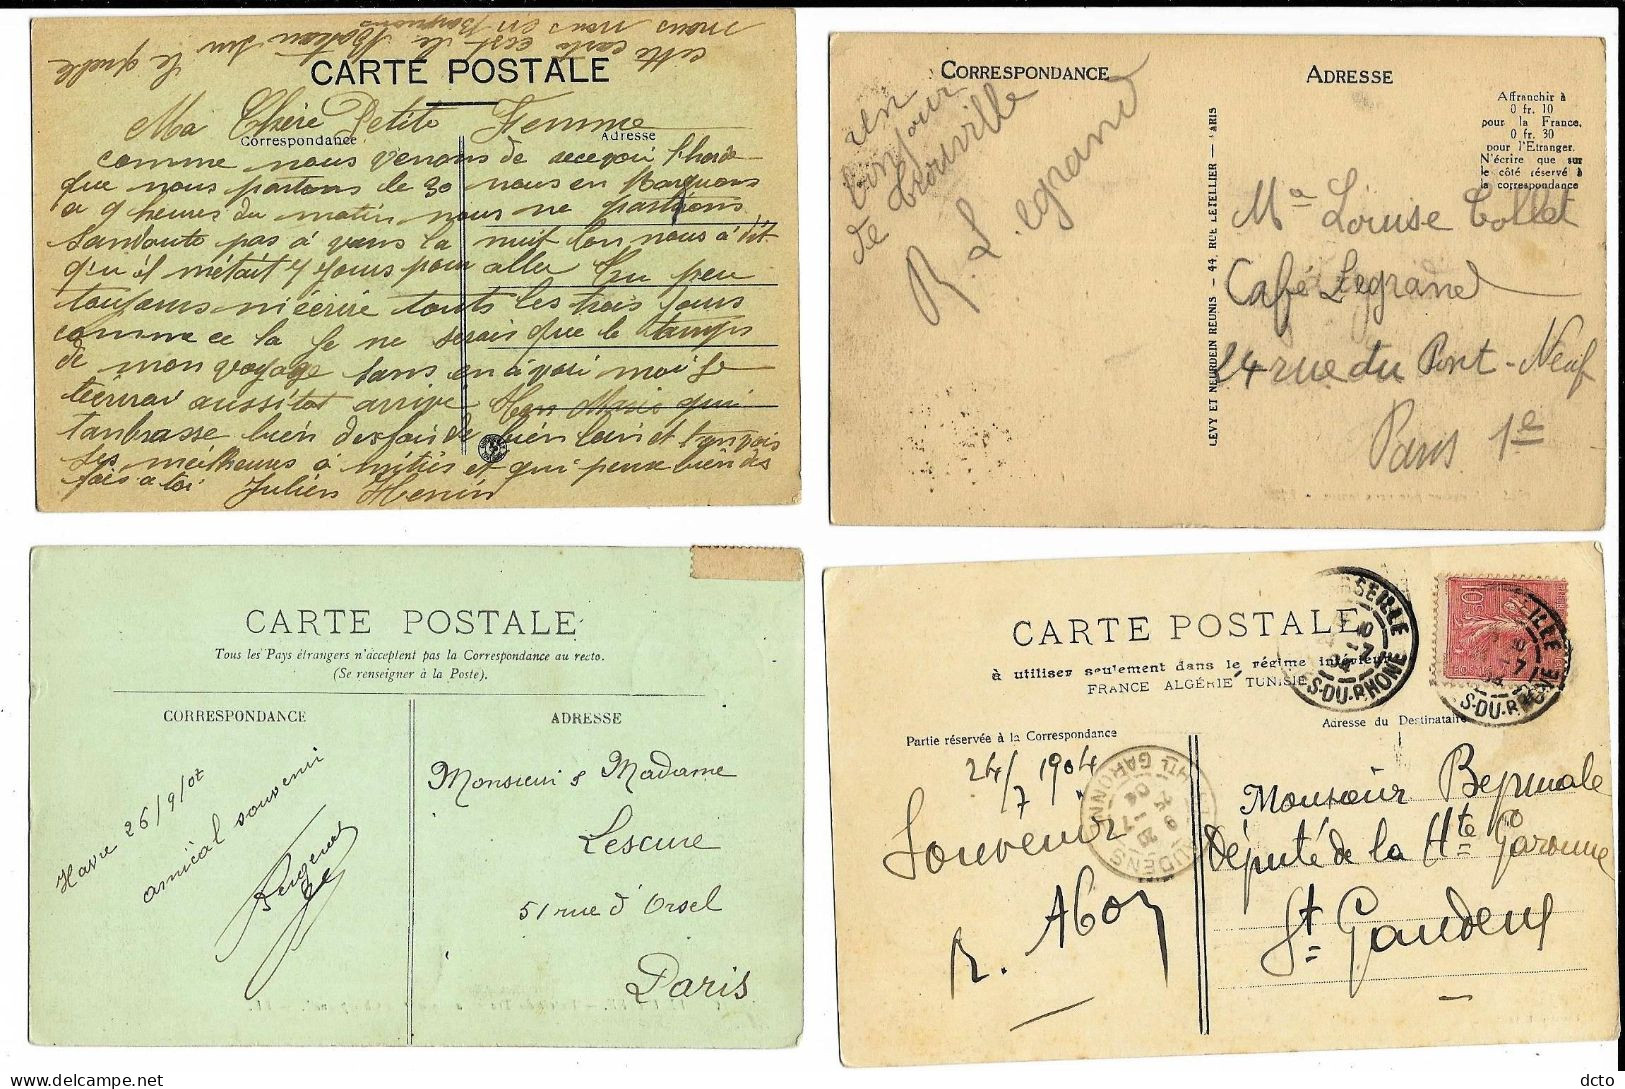 cette carte cest le Bateau sur le quelle
nous nous en
CARTE POSTALE
Ma Chère Petite Femme
Correspondance
Adresse
comme nous venons de recevoir
que nous partons le 30 nous en
a 9 heures du matin nous ne partirons
pas à vans la nuit lon nous à dit
qu'il métait 4 jours pour aller Un peu
toujours mécrire touts les trois jours
comme ce la Je ne serais que le tamps
de mon voyage sans en à voir moi Je
aussitot arrivé Ton Marie qui
tanbrasse bien desfois de bien loin et
Ses meilheures à mitiés et qui pense bien des
fois a toi Julien Henin
CORRESPONDANCE
ADRESSE
Affranchir à
0 fr. 10
pour la France,
0 fr. 30
pour l'Etranger.
N'écrire que sur
le côté réservé à
la correspondance
un
bonjour
de trouville
R. Legrand
LEVY ET NEURDEIN REUNIS - 44, RUE LETELLIER - PARIS
Mª Louise Collet
Café Legrand
24 rue du Pont-Neuf
Paris 1e
CARTE POSTALE
Tous les Pays étrangers n'acceptent pas la Correspondance au recto.
(Se renseigner à la Poste).
CORRESPONDANCE
ADRESSE
Havre 26/9/07
amical souvenir
Monsieur & Madame
Lescure
51 rue d'Orsel
Paris
CARTE POSTALE
à utiliser seulement dans le régime intérieur
FRANCE ALGÉRIE TUNISIE
Partie réservée à la Correspondance
Adresse du Destinataire
S-DU-RHONE
S-DU-RHONE
24/7 1904
Souvenir
Monsieur Bepmale
Député de la Hte Garonne
St Gaudens
dcto